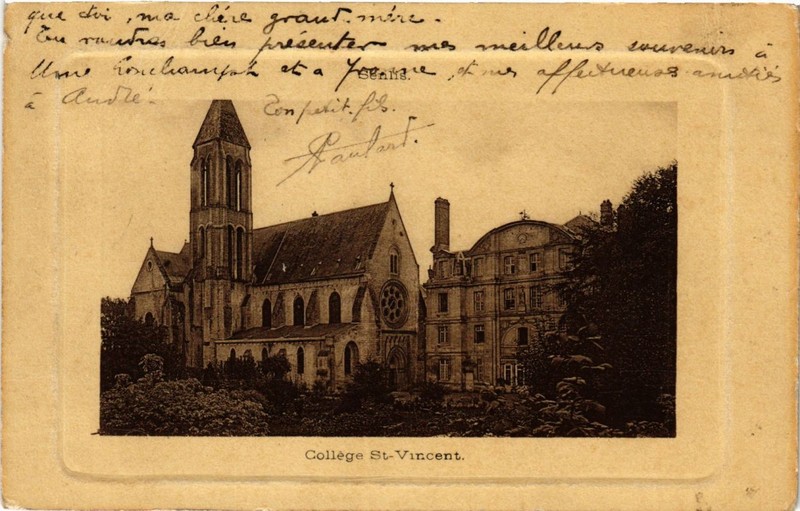 que toi, ma chère grand-mère.
Tu voudras bien présenter mes meilleurs souvenirs à
Mme et à Yvonne, et mes affectueuses amitiés
Senlis.
à André.
Ton petit-fils.
Collège St-Vincent.